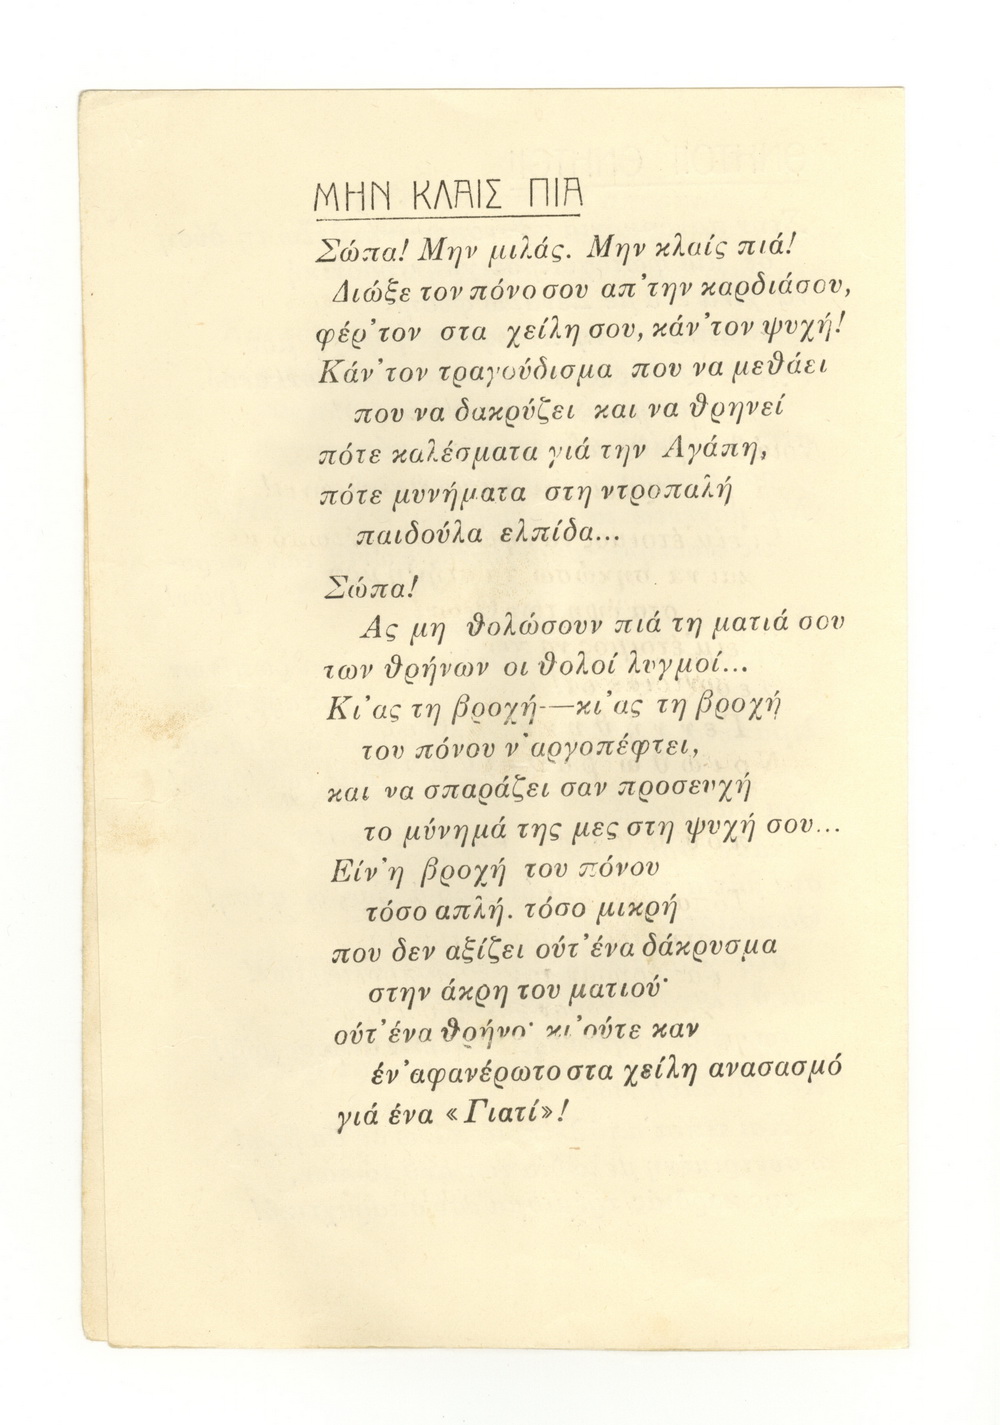 ΜΗΝ ΚΛΑΙΣ ΠΙΑ
Σώπα! Μην μιλάς. Μην κλαίς πιά!
Διώξε τον πόνο σου απ' την καρδιά σου,
φέρ' τον στα χείλη σου, κάν' τον ψυχή!
Κάν' τον τραγούδισμα που να μεθάει
που να δακρύζει και να θρηνεί
πότε καλέσματα γιά την Αγάπη,
πότε μυνήματα στη ντροπαλή
παιδούλα ελπίδα...
Σώπα!
Ας μη θολώσουν πιά τη ματιά σου
των θρήνων οι θολοί λυγμοί...
Κι' ας τη βροχή-—κι' ας τη βροχή
του πόνου ν' αργοπέφτει,
και να σπαράζει σαν προσευχή
το μύνημά της μες στη ψυχή σου...
Είν' η βροχή του πόνου
τόσο απλή. τόσο μικρή
που δεν αξίζει ούτ' ένα δάκρυσμα
στην άκρη του ματιού·
ούτ' ένα θρήνο· κι' ούτε καν
έν' αφανέρωτο στα χείλη ανασασμό
γιά ένα «Γιατί»!